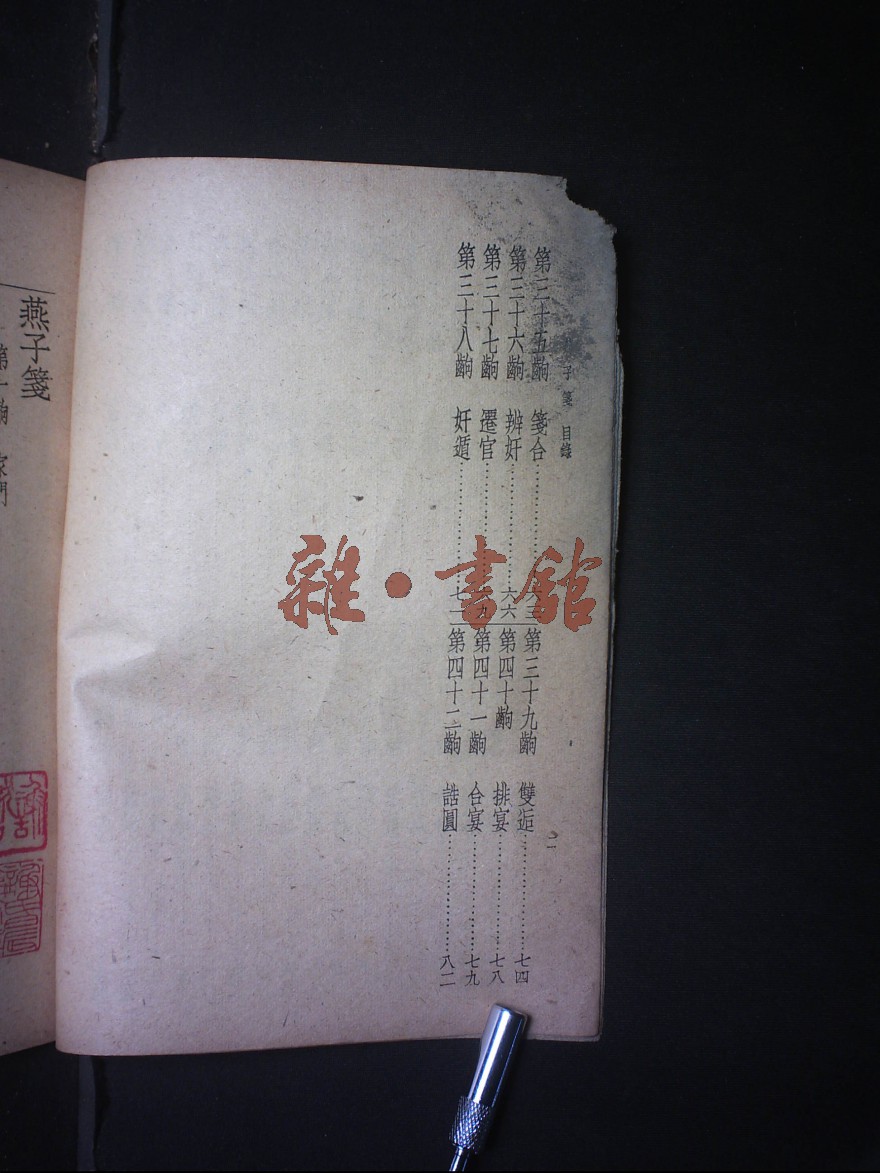 子箋 目錄
第三十五齣 箋合……六三
第三十六齣 辨奸……六六
第三十七齣 遷官……六九
第三十八齣 奸遁……七一
第三十九齣 雙逅……七四
第四十齣 排宴……七八
第四十一齣 合宴……七九
第四十二齣 誥圓……八二
二
燕子箋
第一齣 家門
雜·書館